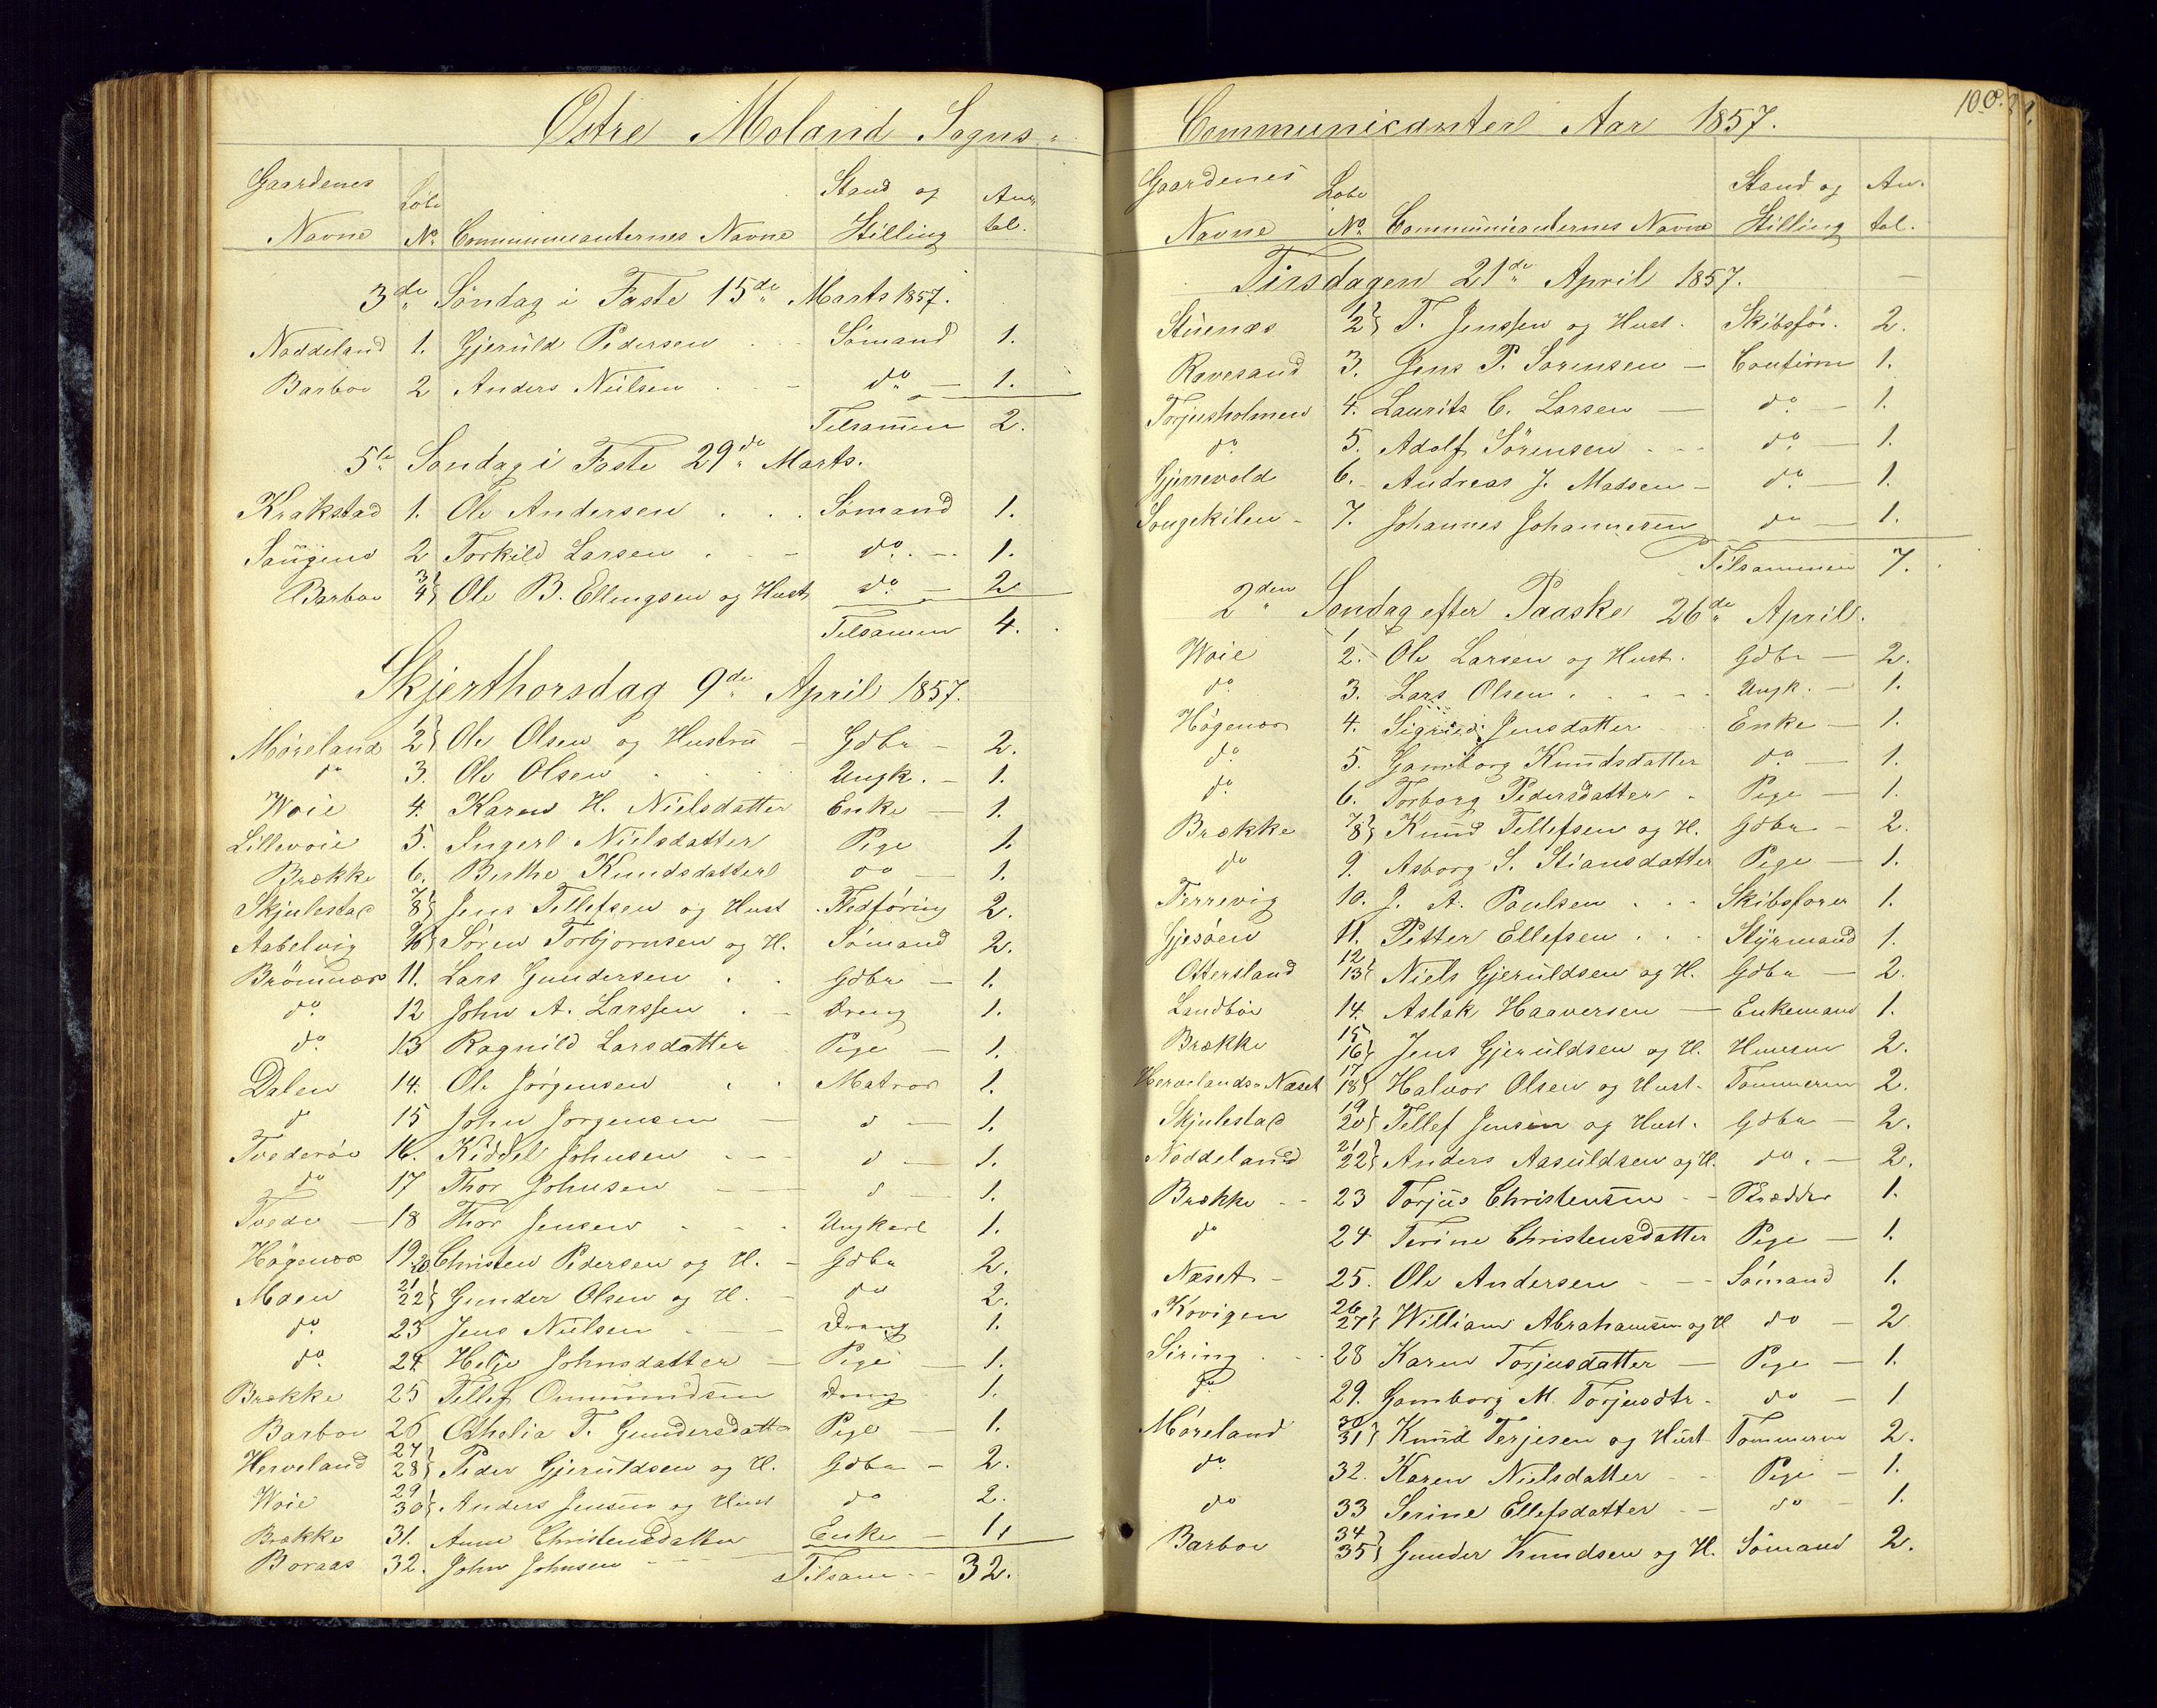 Østre Moland Sogns
Gaardenes Navne Løbe No. Communicanternes Navne Stand og Stilling Antal.
3de Søndag i Faste 15de Marts 1857.
Noddeland 1. Gjeruld Pedersen Sømand 1.
Barboe 2 Anders Nielsen do 1.
Tilsammen 2.
5te Søndag i Faste 29de Marts.
Krakstad 1. Ole Andersen Sømand 1.
Saugene 2 Torkild Larsen do. 1.
Barboe 3 4 Ole B. Ellingsen og Hust do. 2
Tilsamen 4.
Skjerthorsdag 9de April 1857.
Møreland 1 2 Ole Olsen og Hustru Gdbr 2.
do 3. Ole Olsen Ungk. 1.
Woie 4. Karen H. Nielsdatter Enke 1.
Lillevoie 5. Ingerl Nielsdatter Pige 1.
Brække 6. Birthe Knudsdatter do 1.
Skjulestad 7 8 Jens Tellefsen og Hust Fledføring 2.
Aabelvig 9 10 Søren Torbjørnsen og H. Sømand 2.
Brømnæs 11. Lars Gundersen Gdbr 1.
do. 12 John A. Larssen Dreng 1.
do. 13 Ragnild Larsdatter Pige 1.
Dalen 14. Ole Jørgensen Matros 1.
d 15 John Jørgensen d 1.
Tvederøe 16. Kiddel Johnsen d 1.
do 17 Thor Johnsen d 1.
Tvede 18 Thor Jensen Ungkarl 1.
Høgenæs 19. 20. Christen Pedersen og H. Gdbr 2.
Moen 21 22 Gunder Olsen og H. do 2.
do. 23 Jens Nielsen Dreng 1.
do. 24. Helje Johnsdatter Pige 1.
Brække 25 Tellef Ommundsen Dreng 1.
Barboe 26 Othelia T. Gundersdatt Pige 1.
Herveland 27 28 Peder Gjeruldsen og H. Gdbr 2.
Woie 29 30 Anders Jensen og Hust do 2.
Brække 31. Anne Christensdatter Enke 1.
Boraas 32. John Johnsen
Tilsam 32.
100.
Communicanter Aar 1857.
Gaardenes Navne Løbe No. Communicanternes Navne Stand og Stilling Antal.
Tirsdagen 21de April 1857.
Stuenæs 1 2 T. Jenssen og Hust. Skibsfør. 2.
Ravesand 3. Jens P. Sørensen Confirm 1.
Torjusholmen 4. Laurits C. Larsen do. 1.
do. 5. Adolf Sørensen do. 1.
Gjerrevold 6. Andreas J. Madsen do. 1.
Songekilen 7. Johannes Johannesen do 1.
Tilsammen 7.
2den Søndag efter Paaske 26de April.
Woie 1 2. Ole Larsen og Hust. Gdbr 2.
do. 3. Lars Olsen Ungk. 1.
Høgenæs 4. Sigrid Jensdatter Enke 1.
do. 5. Gamborg Knudsdatter do. 1.
do. 6. Torborg Pedersdatter Pige 1.
Brække 7 8 Knud Tellefsen og H. Gdbr 2.
do 9. Asborg S. Stiansdatter Pige 1.
Ferrevig 10. J. A. Poulsen Skibsfører 1.
Gjesøen 11. Petter Ellefsen Styrmand 1.
Ottersland 12 13 Niels Gjeruldsen og H. Gdbr 2.
Landbøe 14. Aslak Haaversen Enkemand 1.
Brække 15 16 Jens Gjeruldsen og H. Huusm 2.
Hervelands Næset 17 18 Halvor Olsen og Hust. Tømmerm 2.
Skjulestad 19 20 Tellef Jensen og Hust. Gdbr 2.
Noddeland 21 22 Anders Aasuldsen og H. do. 2.
Brække 23 Torjus Christensen Skrædder 1.
do 24 Terine Christensdatter Pige 1.
Næset 25. Ole Andersen Sømand 1.
Kovigen 26 27 William Abrahamsen og H do 2
Siring 28 Karen Torjusdatter Pige 1.
do 29. Gamborg M. Torjusdtr. do 1
Møreland 30 31 Knud Terjesen og Hust Tømmerm 2.
do. 32. Karen Nielsdatter Pige 1.
do 33 Serine Ellefsdatter do 1.
Barboe 34 35 Gunder Knudsen og H. Sømand 2.